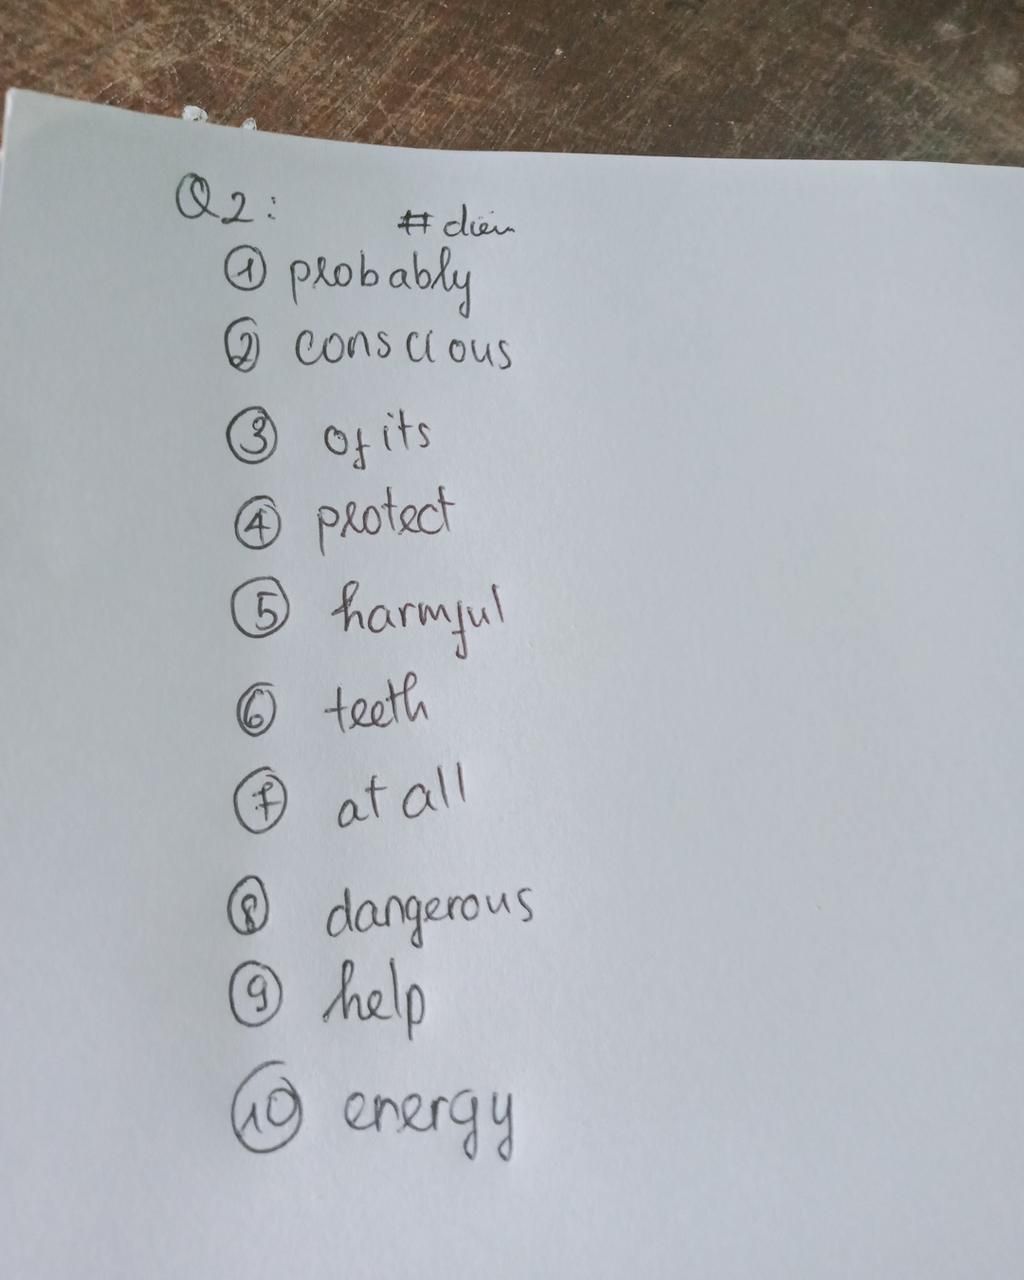 Q2:
# dien
① probably
② conscious
③ of its
④ protect
⑤ harmful
⑥ teeth
⑦ at all
⑧ dangerous
⑨ help
⑩ energy